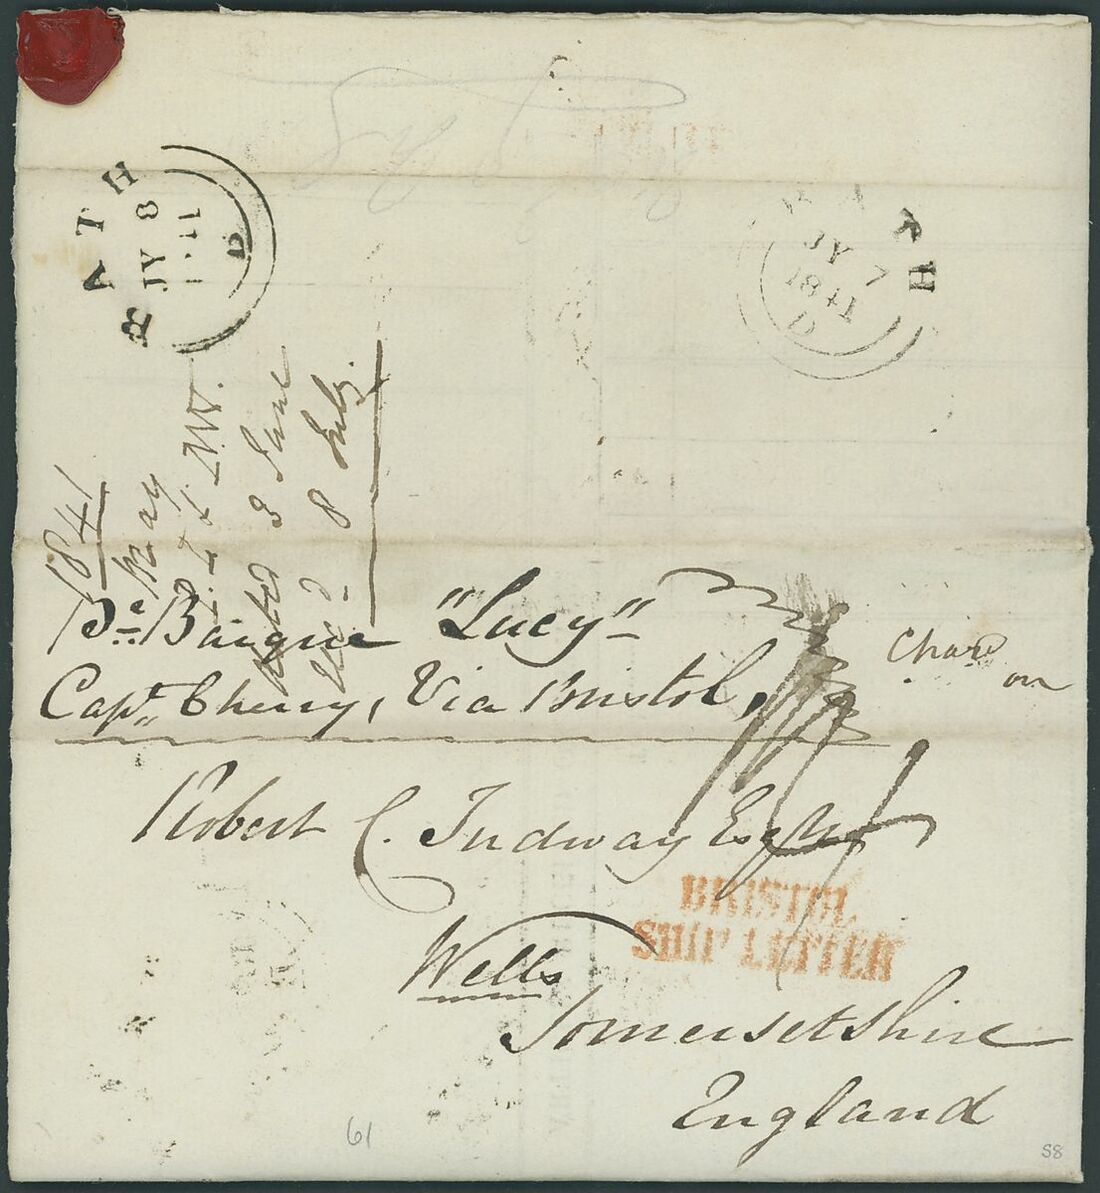 BATH
JY 8
1841
D
BATH
JY 7
1841
D
1841
May
Dated 3 June
Recd. 8 July.
Pe. Barque "Lucy"
Capt. Cherry, Via Bristol,
Chard
on
Robert C. Tudway Esqr
BRISTOL
SHIP LETTER
Wells
Somersetshire
England
61
58